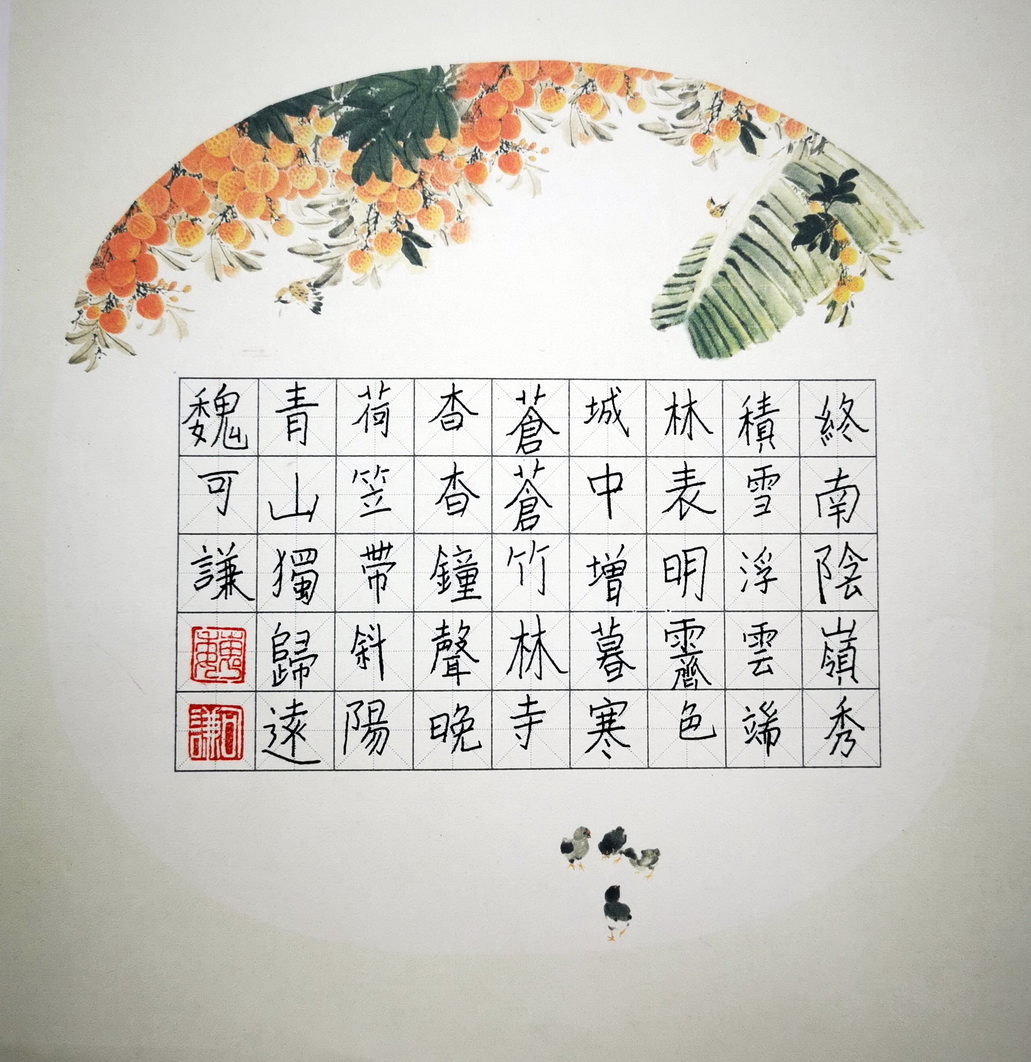 終南陰嶺秀
積雪浮雲端
林表明霽色
城中增暮寒
蒼蒼竹林寺
杳杳鐘聲晚
荷笠帶斜陽
青山獨歸遠
魏可謙
可謙